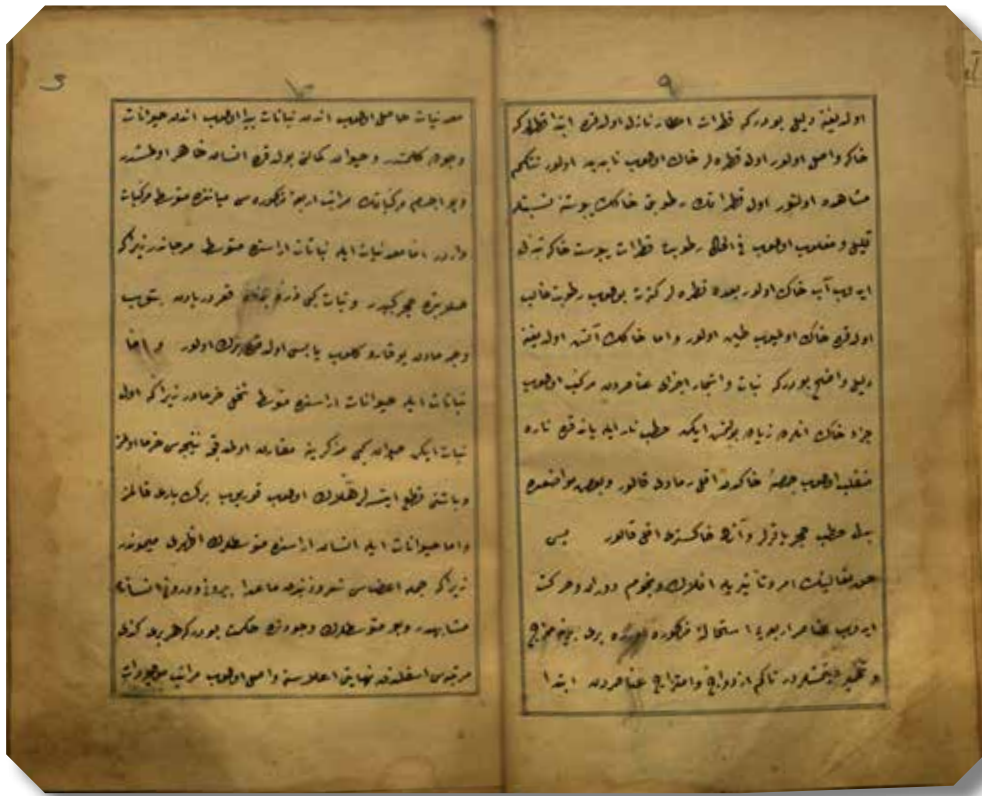 ٩
اولدیغنه دلیل بودرکه قطرات امطار نازل اولدقده ابتدا قطره که
خاکه واصل اولور اول قطره لر خاک اولوب ناپدید اولور نتکم
مشاهده اولنور اول قطراتک رطوبتی خاکک یبوسته نسبتله
قلیل و مغلوب اولوب فی الحال رطوبت قطرات یبوست خاکه تبدل
ایدوب آب خاک اولور بعده قطره لر کثرت بولوب رطوبت غالب
اولدقده خاک اولمیوب طین اولور و اما خاکک آتش اولدیغنه
دلیل واضح بودرکه نبات و اشجار اجزای عناصردن مرکب اولوب
جزء خاک انلرده زیاده بولنمش ایکن حطب نار ایله یاندقده ناره
منقلب اولوب حصهٔ خاکدن اقل رماد قالور و بعض مواضعده
بیله حطب حجر یاقرلر و آنک خاکستری اقل قالور پس
حق تعالینک امر و تأثیریله افلاک و نجوم دور و حرکت
ایدوب عناصر اربعه یی استحالهٔ مذکوره اوزره بری برینه مزج
و تخمیر ایتمشلردر تاکم ازدواج و امتزاج عناصردن ابتدا
١٠
معدنیات حاصل اولوب اندن نباتات پیدا اولوب اندن حیوانات
وجوده کلمشدر و حیوان کمالن بولدقده انسان ظاهر اولمشدر
و بو اجسام مرکباتک مراتب اربعهٔ مذکوره سی میاننده متوسط مرکبات
واردر اما معدنیات ایله نباتات اراسنده متوسط مرجاندر زیراکه
صلابتده حجر کبیدر و نبات کبی دریا قعرورندن بتوب
یوقارو کلوب یابس اولدقده برک اولور و اما
نباتات ایله حیوانات اراسنده متوسط نخل خرمادر زیراکه اول
نبات ایکن حیوان کبی مذکرینه مقارن اولمدقجه نتیجه سی خرما اولمز
و باشنی قطع ایتسه لر هلاک اولوب قوریوب برک بار قالمز
و اما حیوانات ایله انسان اراسنده متوسطلرک اظهری میموندر
زیراکه جمله اعضاسی ماعدا بیرون و درون انسانه
مشابهدر و بو متوسطلرک وجودنده حکمت بودرکه هر بری کندی
مرتبه سی اسفلندن نهایتی اعلاسنه واصل اولوب مراتب موجودات